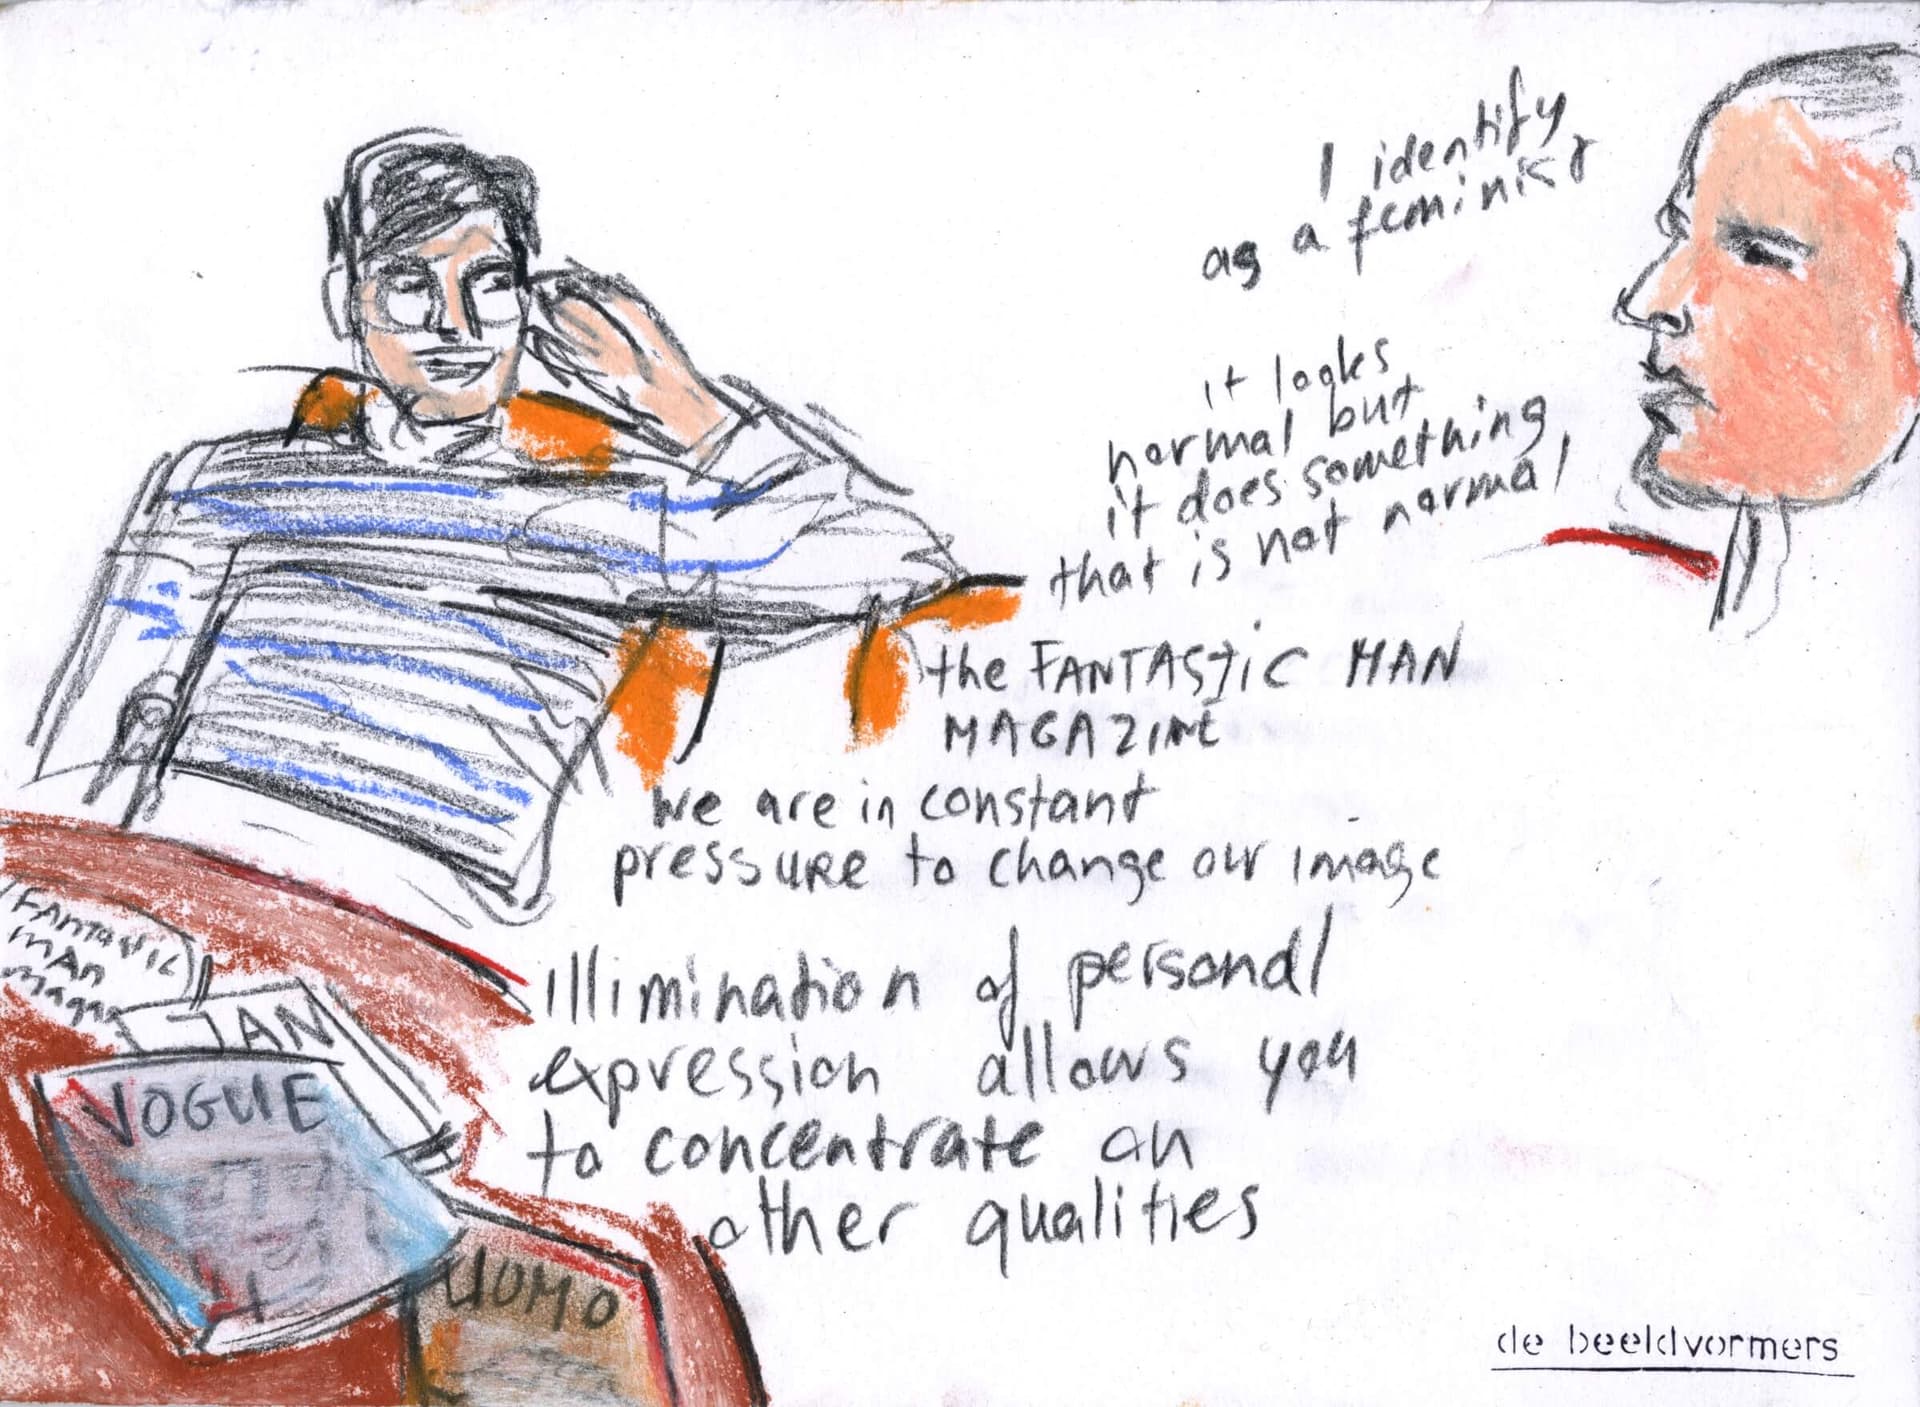 I identify
as a feminist
it looks
normal but
it does something
that is not normal
the FANTASTiC MAN
MAGAZINE
we are in constant
pressURE to change our image
illimination of personal
expression allows you
to concentrate on
other qualities
FANTASTIC
MAN
magaz
JAN
VOGUE
UOMO
de beeldvormers